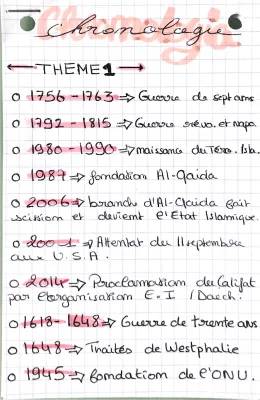 Chronologie
THEME 1
1756 - 1763 ⇒ Guerre de sept ans
1792 - 1815 ⇒ Guerre révo. et napo.
1980 - 1990 ⇒ naissance du Terro. Isla.
1987 ⇒ fondation Al-Qaida
2006 ⇒ branche d'Al-Qaida fait
scission et devient l'Etat Islamique.
2001 ⇒ Attentat du 11 septembre
aux U.S.A.
2014 ⇒ Proclamation du Califat
par l'organisation E.I / Daech.
1618 - 1648 ⇒ Guerre de trente ans
1648 ⇒ Traités de Westphalie
1945 ⇒ fondation de l'ONU.